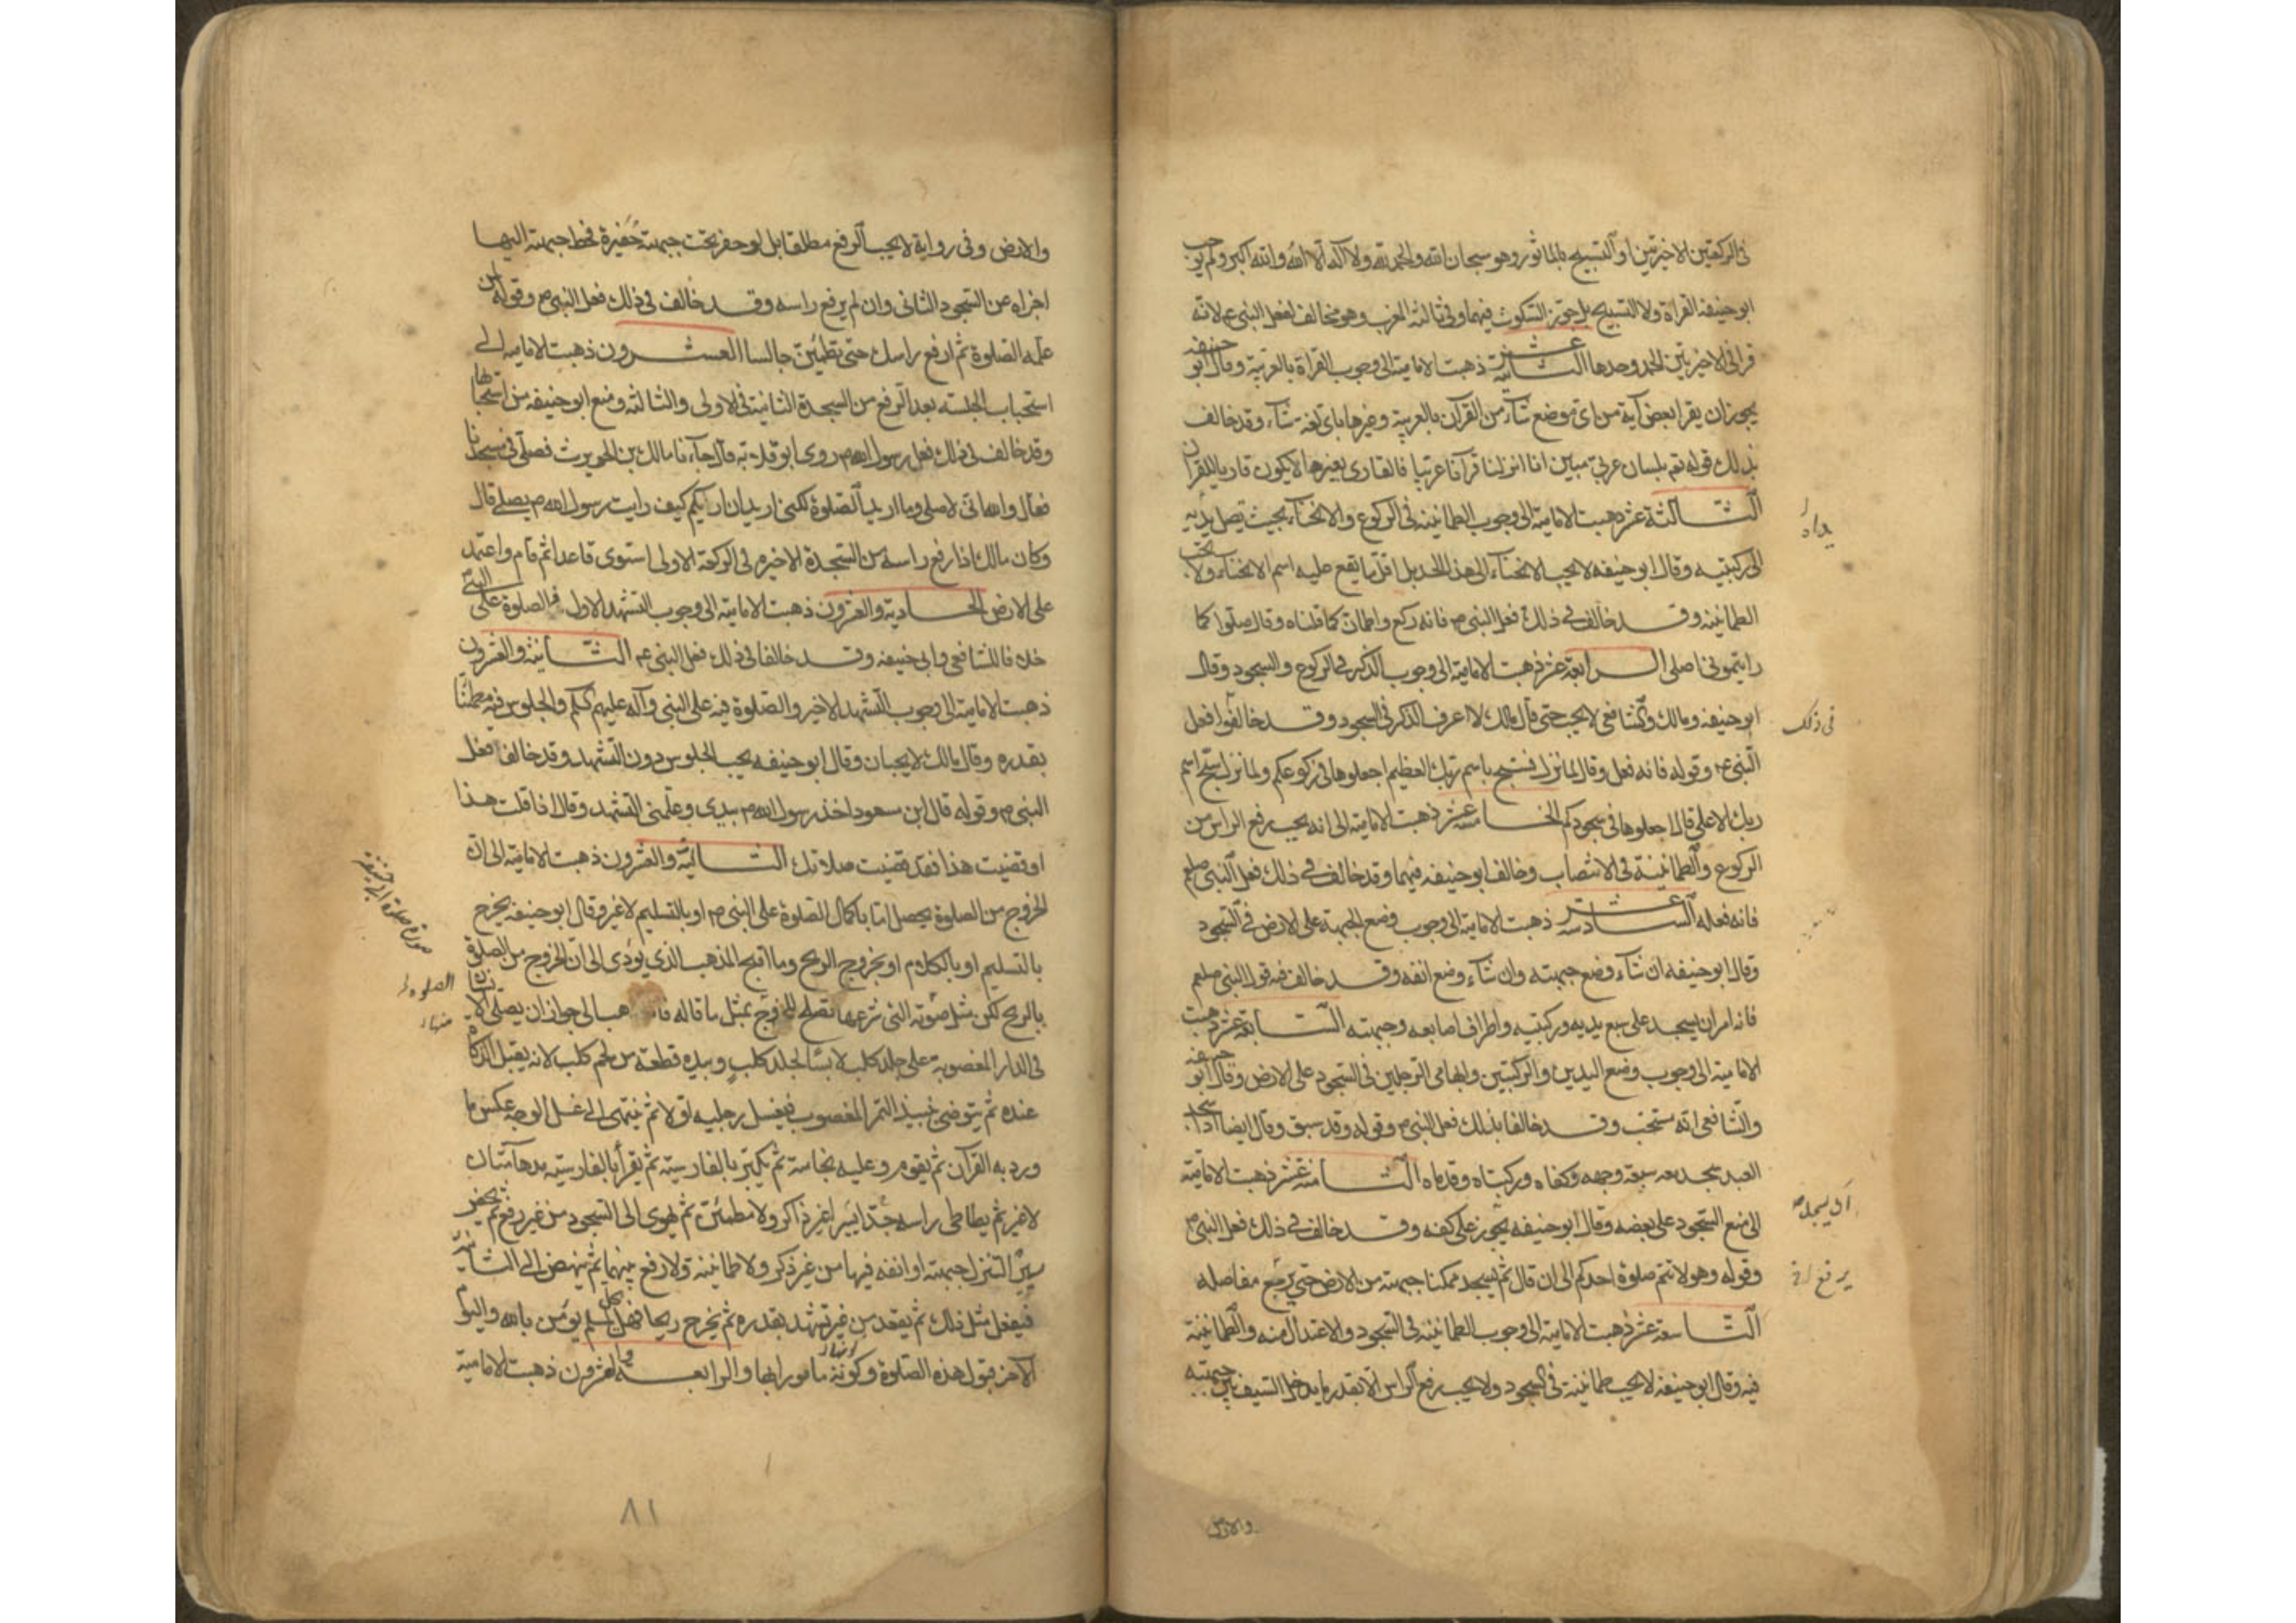 فى الركعتين الاخيرتين او التسبيح بالماثور وهو سبحان الله والحمد لله ولا اله الا الله والله اكبر ولم يوجب
ابو حنيفة القراة ولا التسبيح بل جوز السكوت فيهما وفى ثالثة المغرب وهو مخالف لفعل النبى ع لانه
قرا فى الاخيرتين الحمد وحدها الثانية عشر ذهبت الامامية الى وجوب القراة بالعربية وقال ابو حنيفه
يجوز ان يقرا بعض آية من اى موضع شآء من القرآن بالعربية وغيرها باى لغة شآء وقد خالف
بذلك قوله تعم بلسان عربى مبين انا انزلنا قرآنا عربيا فالقارى بغيرها لا يكون قاريا للقران
الثالثة عشر ذهبت الامامية الى وجوب الطمانينه فى الركوع والانحناء بحيث تصل يديه
يداه
الى ركبتيه وقال ابو حنيفه لا يجب الانحنآء الى هذا الحد بل اقل ما يقع عليه اسم الانحناء ولا يجب
الطمانينه وقد خالف فى ذلك فعل النبى ص فانه ركع واطمان كما قلناه وقال صلوا كما
رايتمونى اصلى الرابعة عشر ذهبت الامامية الى وجوب الذكر فى الركوع والسجود وقال
ابو حنيفه ومالك والشافعى لا يجب حتى قال مالك لا اعرف الذكر فى السجود وقد خالفوا فعل
فى ذلك
النبى ع وقوله فانه فعل وقال لما نزل فسبح باسم ربك العظيم اجعلوها فى ركوعكم ولما نزل سبح اسم
ربك الاعلى قال اجعلوها فى سجودكم الخامسة عشر ذهبت الامامية الى انه يجب رفع الراس من
الركوع والطمانينة فى الانتصاب وخالف ابو حنيفه فيهما وقد خالف فى ذلك فعل النبى صلعم
فانه فعله السادسه عشر ذهبت الامامية الى وجوب وضع الجبهة على الارض فى السجود
وقال ابو حنيفه ان شآء وضع جبهته وان شآء وضع انفه وقد خالف فيه قول النبى صلعم
فانه امر ان يسجد على سبع يديه وركبتيه واطراف اصابعه وجبهته السابعة عشر ذهبت
الامامية الى وجوب وضع اليدين والركبتين وابهامى الرجلين فى السجود على الارض وقال ابو حنيفه
والشافعى انه مستحب وقد خالفا بذلك فعل النبى ص وقوله وقد سبق وقال ايضا اذا سجد
العبد سجد معه سبعة وجهه وكفاه وركبتاه وقدماه الثامنة عشر ذهبت الامامية
الى منع السجود على بعضه وقال ابو حنيفه يجوز على كفه وقد خالف فى ذلك فعل النبى ص
وقوله وهو لا تتم صلوة احدكم الى ان قال ثم يسجد ممكنا جبهته من الارض حتى يرجع مفاصله
التاسعة عشر ذهبت الامامية الى وجوب الطمانينه فى السجود والاعتدال منه والطمانينة
فيه وقال ابو حنيفه لا يجب طمانينة فى السجود ولا يجب رفع الراس الا بقدر ما يدخل السيف بين جبهته
والارض
والارض وفى رواية لا يجب الرفع مطلقا بل لو حفر تحت جبهته حفيرة فحط جبهته اليها
اجزاه عن السجود الثانى وان لم يرفع راسه وقد خالف فى ذلك فعل النبى ص وقوله لمن
علمه الصلوة ثم ارفع راسك حتى تطمئن جالسا العشرون ذهبت الامامية الى
استحباب الجلسه بعد الرفع من السجدة الثانية فى الاولى والثالثة ومنع ابو حنيفه من استحبابها
وقد خالف فى ذلك فعل رسول الله ص روى ابو قلابه قال جآءنا مالك بن الحويرث فصلى فى مسجدنا
فقال والله انى لاصلى وما اريد الصلوة لكنى اريد ان اريكم كيف رايت رسول الله ص يصلى قال
وكان مالك اذا رفع راسه من السجدة الاخيره فى الركعة الاولى استوى قاعدا ثم قام واعتمد
على الارض الحادية والعشرون ذهبت الامامية الى وجوب التشهد الاول والصلوة على النبى
خلافا للشافعى وابى حنيفه وقد خالفا فى ذلك فعل النبى ع الثانية والعشرون
ذهبت الامامية الى وجوب التشهد الاخير والصلوة فيه على النبى وآله عليهم السلم والجلوس فيه مطمئنا
بقدره وقال مالك لا يجبان وقال ابو حنيفه يجب الجلوس دون التشهد وقد خالفا فعل
النبى ص وقوله قال ابن مسعود اخذ رسول الله ص بيدى وعلمنى التشهد وقال اذا قلت هذا
او قضيت هذا فقد قضيت صلاتك الثالثة والعشرون ذهبت الامامية الى ان
الخروج من الصلوة يحصل اما باكمال الصلوة على النبى ص او بالتسليم لا غير وقال ابو حنيفه يخرج
صورة صلوة ابى حنيفة
بالتسليم او بالكلام او بخروج الريح وما اقبح المذهب الذى يؤدى الى ان الخروج من الصلوة
الصلوة
بالريح لكن مثل صلوته التى شرعها تصلح للخروج بمثل ما قاله فانه ذهب الى جواز ان يصلى الانسان
فى الدار المغصوبة على جلد كلب لابسا لجلد كلب وبيده قطعة من لحم كلب لانه يقبل الذكاة
عنده ثم يتوضى بنبيذ التمر المغصوب فيغسل رجليه اولا ثم ينتهى الى غسل الوجه عكس ما
ورد به القرآن ثم يقوم وعليه نجاسة ثم يكبر بالفارسية ثم يقرأ بالفارسية مدهآمتان
لا غير ثم يطاطى راسه جدا يسيرا غير ذاكر ولا مطمئن ثم يهوى الى السجود من غير رفع ثم يحفر
يسيرا لتنزل جبهته او انفه فيها من غير ذكر ولا طمانينة ولا رفع بينهما ثم ينهض الى الثانية
فيفعل مثل ذلك ثم يقعد من غير تشهد بقدره ثم يخرج ريحا فهل يحل لمسلم يؤمن بالله واليوم
الآخر قبول هذه الصلوة وكونه مامورا بها والرابعة والعشرون ذهبت الامامية
٨١